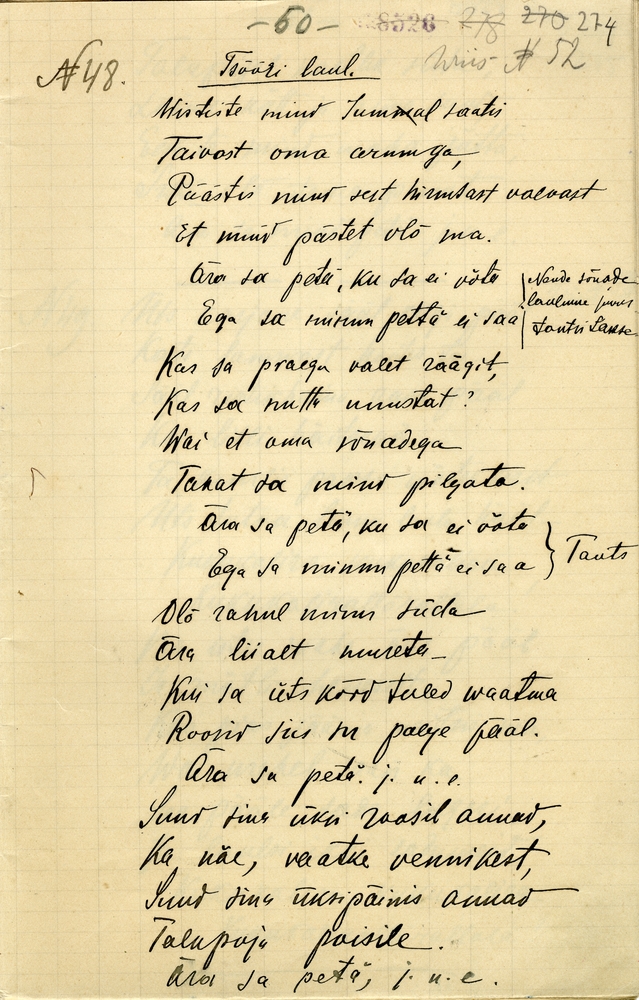 -60- 28526 278 270 274
№48. Tsööri laul. Wiis № 52
Mististe mind Jummal saatis
Taivast oma armuga,
Päästis mind sest hirmsast vaevast
Et nüüd pästet olõ ma.
Ära sa petä, ku sa ei võta
Ega sa minnu pettä ei saa
Nende sõnade
laulmine juures
tantsitakse
Kas sa praegu valet räägit,
Kas sa mutto muustat?
Wai et oma sõnadega
Tahat sa mind pilgata.
Ära sa petä, ku sa ei võta
Ega sa minnu pettä ei saa
Tants
Olõ rahul minu süda
Ära liialt mureta
Kui sa ütskõrd tuled waatma
Roosid siis su palge pääl.
Ära sa petä. j. n. e.
Suud sina üksi roosil annad,
Ka näe, vaatke vennikest,
Suud sina üksipäinis annad
Talupoja poisile.
Ära sa petä, j. n. e.